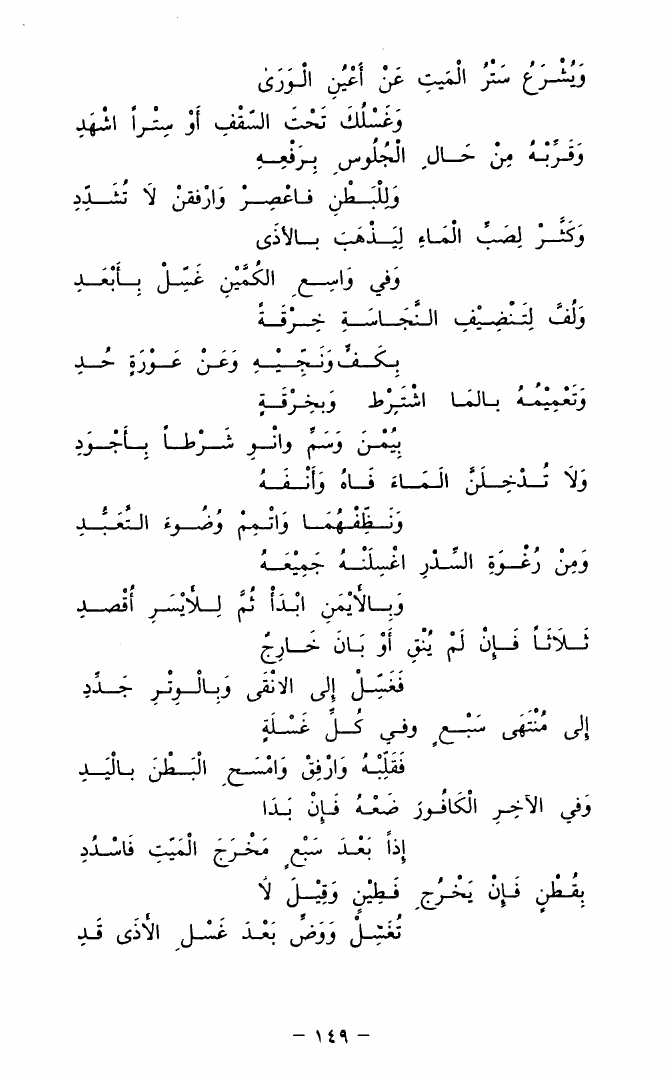 وَيُشْـرَعُ سَتْرُ الْمَيتِ عَنْ أَعْيُنِ الْـوَرَى
وَغَسْلُكَ تَحْتَ السَّقْفِ أَوْ سِتْراً اشْهَدِ
وَقَـرِّبْـهُ مِنْ حَـالِ الْجُلُوسِ بِـرَفْعِـهِ
وَلِلْبَـطْنِ فـاعْصِـرْ وَارْفقنْ لَا تُشَـدِّدِ
وَكَثِّـرْ لِصَبِّ الْمَـاءِ لِيَـذْهَبَ بـالأذَى
وَفي وَاسِعِ الكُمَّيْنِ غَسِّلْ بِـأَبْعَـدِ
وَلُفَّ لِتَنْضِيْفِ النَّجَـاسَـةِ خِـرْقَـةً
بِـكَـفٍّ وَنَجِّـيْـهِ وَعَـنْ عَـوْرَةٍ حُـدِ
وَتَعْمِيْمُـهُ بالمَـا اشْتَـرِطْ وَبِخِـرْقَـةٍ
بِيُمْنَ وَسَمِّ وانْـوِ شَـرْطـاً بِـأَجْـوَدِ
وَلَا تُـدْخِـلَنَّ الْـمَـاءَ فَـاهُ وَأَنْـفَـهُ
وَنَـظِّفْهُمَـا وَاتْمِمْ وُضُـوءَ التَّعَبُّـدِ
وَمِنْ رُغْـوَةِ السِّـدْرِ اغْسِلَنْـهُ جَمِيْعَـهُ
وَبِـالأَيْمَنِ ابْـدَأ ثُمَّ لِـلأَيْسَـرِ أقْصـدِ
ثَـلَاثَـاً فَـإِنْ لَمْ يُنْقِ أَوْ بَـانَ خَـارِجٌ
فَغَسِّـلْ إِلَى الانْقَى وَبِـالْـوِتْـرِ جَـدِّدِ
إِلى مُنْتَهَى سَبْـعٍ وفـي كُـلِّ غَسْـلَةٍ
فَقَلِّبْـهُ وَارْفِقْ وَامْسَـحِ الْبَـطْنَ بـالْيَـدِ
وَفي الآخِـرِ الْكَافُـورَ ضَعْـهُ فَـإِنْ بَـدَا
إِذاً بَعْـدَ سَبْعٍ مَخْـرَجَ الْمَيّتِ فَاسْدُدِ
بِقُـطْنٍ فَـإِنْ يَخْـرُجِ فَـطِيْنٍ وَقِيْـلَ لَا
تُغَسِّـلْ وَوَضِّ بَعْـدَ غَسْـلِ الأَذَى قَـدِ
- ١٤٩ -